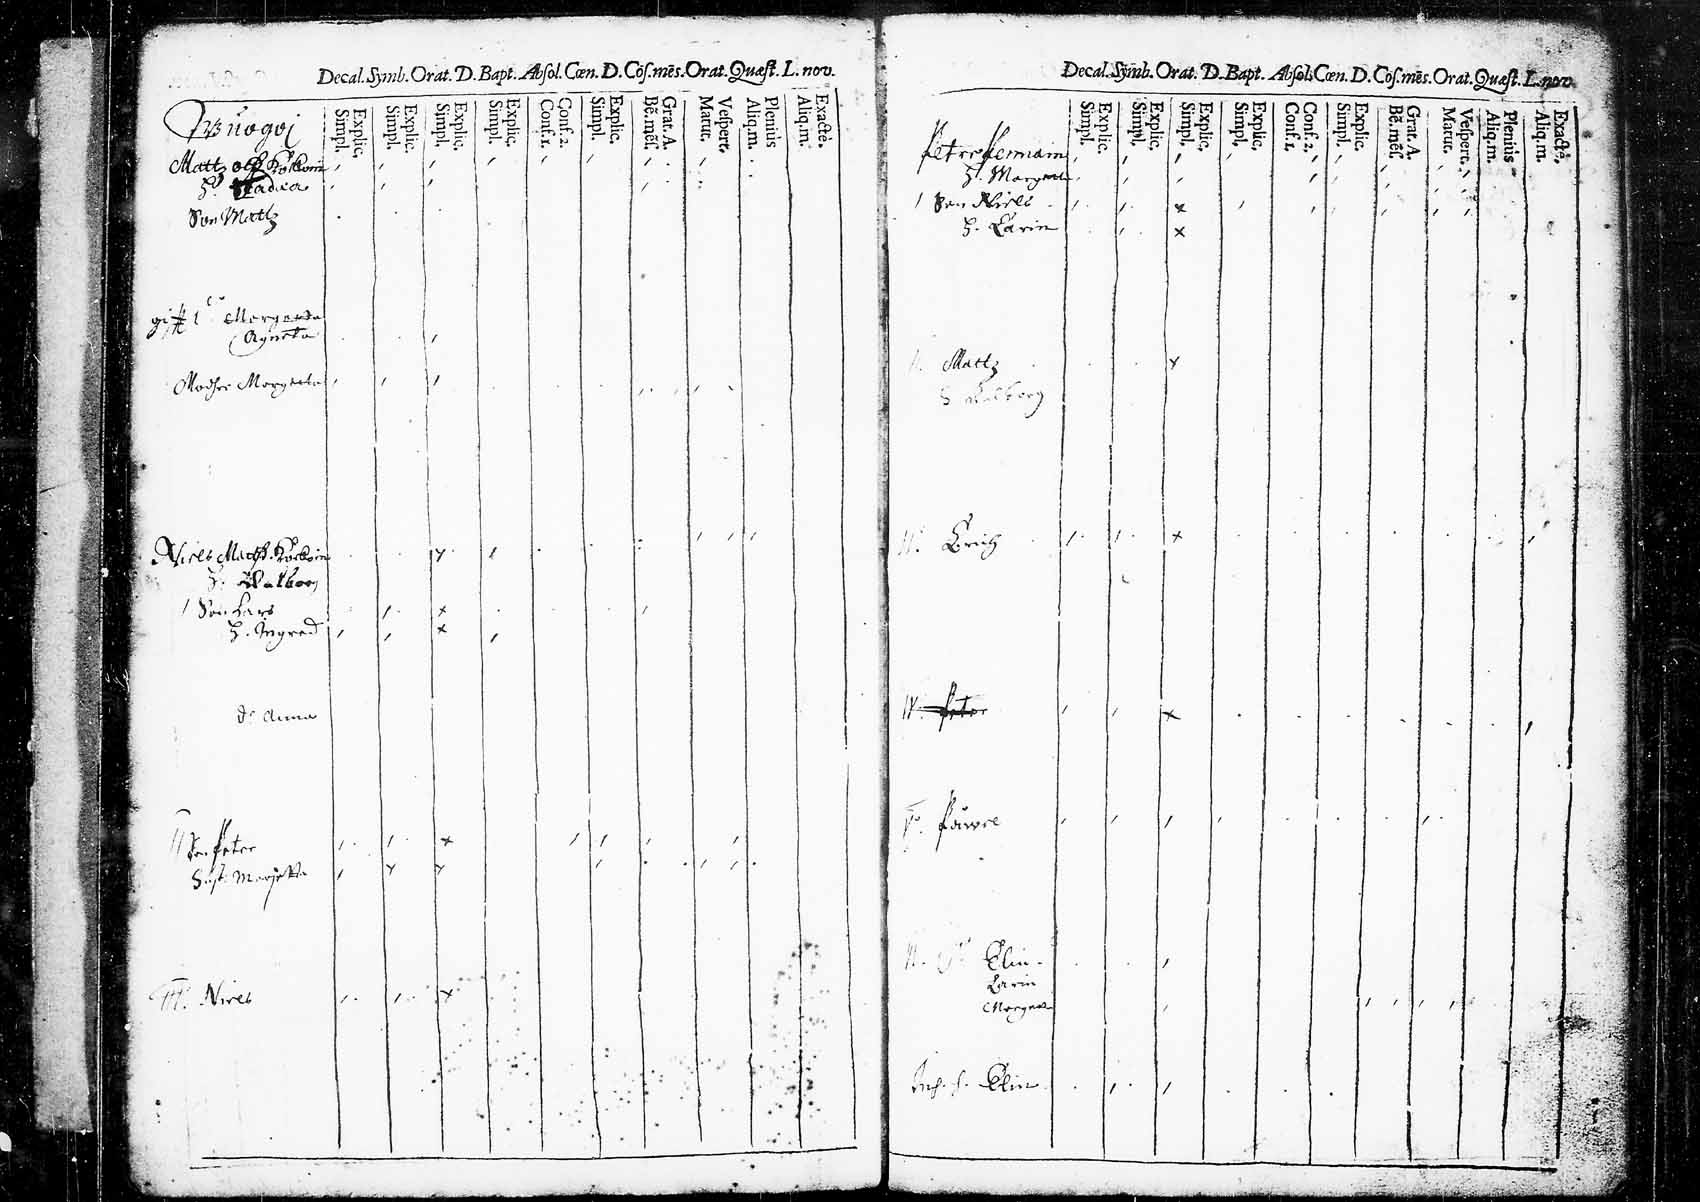 Decal. Symb. Orat. D. Bapt. Absol. Cœn. D. Cōf. mēs. Orat. Quæst. L. nov.
Explic. Simpl.
Explic. Simpl.
Explic. Simpl.
Explic. Simpl.
Conf. 2. Conf. 1.
Explic. Simpl.
Grat. A. Bē. mēſ.
Veſpert. Matut.
Plenius Aliq. m.
Exactè. Aliq. m.
Mattz
H.
Son Mattz
gifft Margeeta
Agneta
Modher Margeta
Niels Mattz.
H. Walborg
1 Son Lars
H. Ingred
dr Anna
II Son Peter
Hust. Marjetta
III. Niels
Decal. Symb. Orat. D. Bapt. Absol. Cœn. D. Cōf. mēs. Orat. Quæst. L. nov.
Explic. Simpl.
Explic. Simpl.
Explic. Simpl.
Explic. Simpl.
Conf. 2. Conf. 1.
Explic. Simpl.
Grat. A. Bē. mēſ.
Veſpert. Matut.
Plenius Aliq. m.
Exactè. Aliq. m.
Peter
H. Marget
1 Son Niels
H. Carin
II. Mattz
H Walborg
III. Erich
IV. Peter
Påwel
Elin
Carin
Marget
Inh. h. Elin